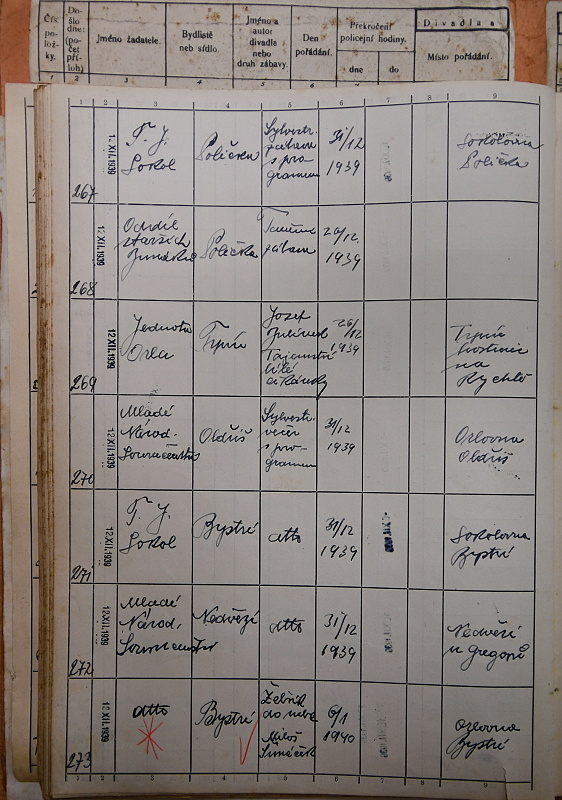 Čís.
po-
ložky.
Do-
šlo
dne:
(po-
čet
pří-
loh)
Jméno žadatele.
Bydliště
neb sídlo.
Jméno a
autor
divadla
nebo
druh zábavy.
Den
pořádání.
Překročení
policejní hodiny.
dne
do
Divadla a
Místo pořádání.
1 2 3 4 5 6 7 8 9
267
12 XII. 1939
T. J.
Sokol
Polička
Sylvestr.
zábava
s pro
gramem
31/12
1939
Sokolovna
Polička
268
12 XII. 1939
Oddíl
starších
Junáků
Polička
Taneční
zábava
26/12.
1939
269
12 XII. 1939
Jednota
Orla
Trpín
Josef
Tajemství
lilií
26/12
1939
Trpín
hostinec
na
Rychtě
270
12 XII. 1939
Mladé
Národ.
Souručenství
Oldřiš
Sylvestr.
večer
s pro-
gramem
31/12
1939
Orlovna
Oldřiš
271
12 XII. 1939
T. J.
Sokol
Bystré
dtto
31/12
1939
Sokolovna
Bystré
272
12 XII. 1939
Mladé
Národ.
Souručenství
Nedvězí
dtto
31/12
1939
Nedvězí
u Gregorů
273
12 XII. 1939
dtto
Bystré
Žebřík
do nebe
Miloš
6/1
1940
Orlovna
Bystré